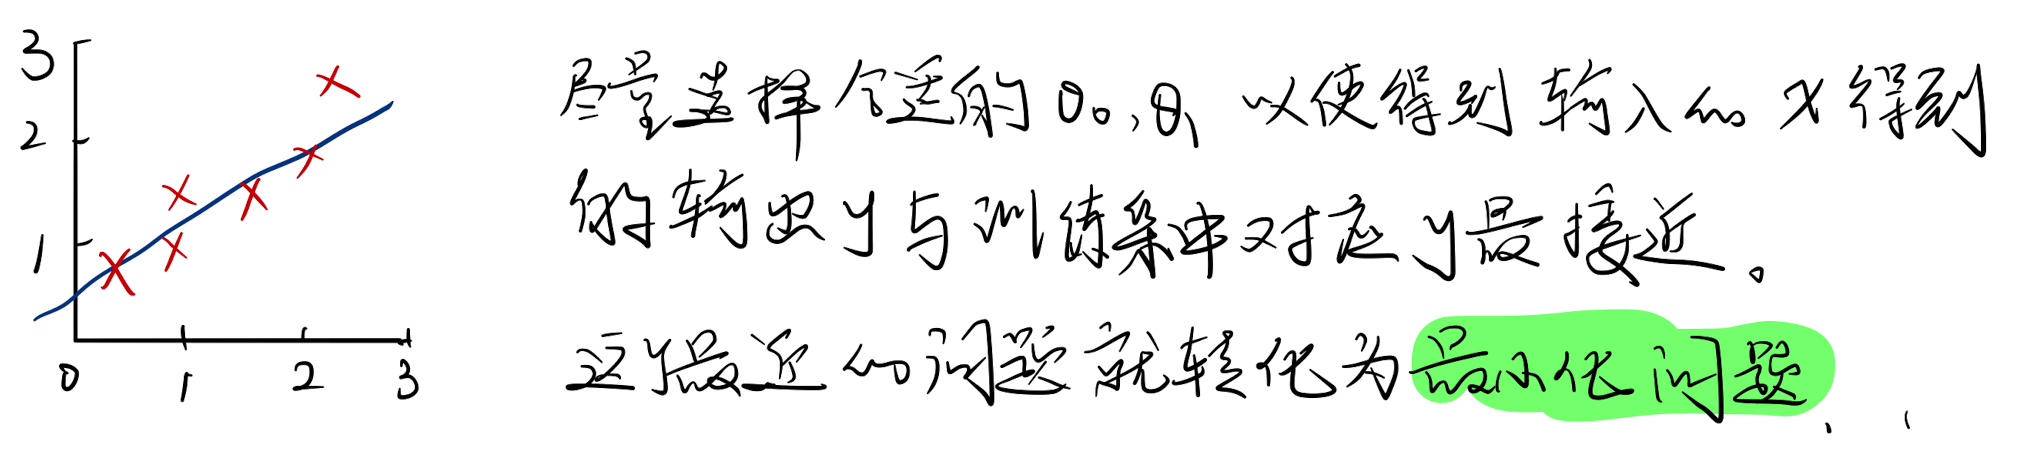 3
2
1
0 1 2 3
尽量选择合适的 θ₀,θ₁ 以使得到输入的 x 得到
的输出 y 与训练集中对应 y 最接近。
这 y 最近的问题就转化为最小化问题.